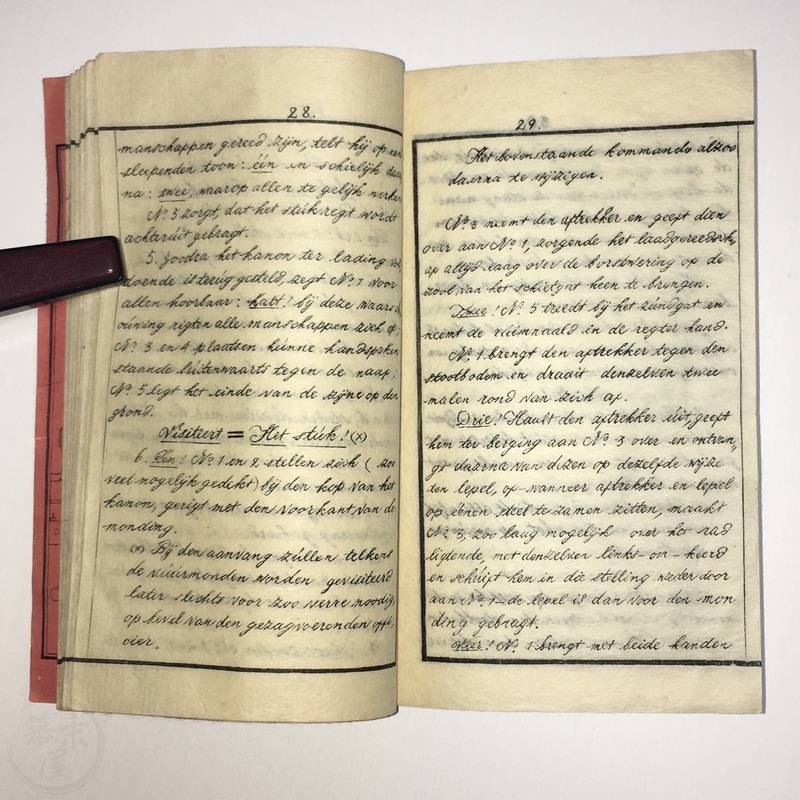 28.
manschappen gereed zijn, telt hij op een
sleependen toon: één en schielijk daar
na: twee, waarop allen te gelijk werken
No. 3 zorgt, dat het stúk regt wordt
achterúit gebragt.
5. Zoodra het kanon ter lading vol
doende is terug gesteld, zegt No. 1 voor
allen hoorbaar: halt! bij deze waarsch
oúwing rigten alle manschappen zich op;
No. 3 en 4 plaatsen húnne handspaken
staande búitenwaarts tegen de naaf;
No. 5 legt het einde van de zijne op den
grond.
Visiteert = Het stúk! (x)
6. Een! No. 1 en 2 stellen zich (zoo
veel mogelijk gedekt) bij den kop van het
kanon, gerigt met den voorkant van de
monding.
(x) Bij den aanvang zúllen telkens
de vúúrmonden worden gevisiteerd
later slechts voor zoo verre noodig,
op bevel van den gezagvoerenden offi
cier.
29.
Het bovenstaande kommando alzoo
daarna te wijzigen.
No. 3 neemt den aftrekker en geeft dien
over aan No. 1, zorgende het laadgereedsch,
ap altijd laag over de borstwering op de
zool van het schietgat heen te brengen.
Twee! No. 5 treedt bij het zúndgat en
neemt de rúimnaald in de regter hand.
No. 1 brengt den aftrekker tegen den
stootbodem en draait denzelven twee
malen rond van zich af.
Drie! Haalt den aftrekker úit, geeft
hem ter berging aan No. 3 over en ontvan,,
gt daarna van dezen op dezelfde wijze
den lepel, of wanneer aftrekker en lepel
op éénen steel te zamen zitten, maakt
No. 3, zoo laag mogelijk over het rad
liggende, met denzelven links-om-keerd
en schúift hem in die stelling weder door
aan No. 1 - de lepel is dan voor den mon
ding gebragt.
Vier! No. 1 brengt met beide handen